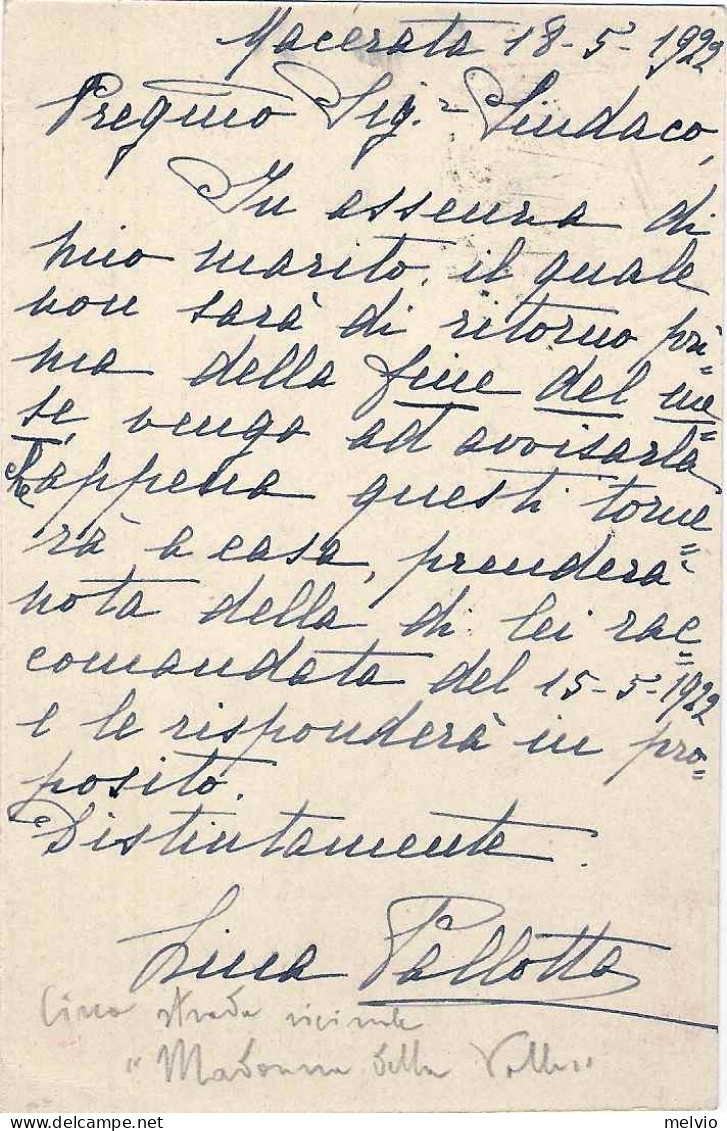 Macerata 18-5-1922
Pregmo Sig.= Sindaco,
In assenza di
mio marito, il quale
non sarà di ritorno pri=
ma della fine del me=
se, vengo ad avvisarla
che appena questi torne=
rà a casa, prenderà
nota della di lei rac=
comandata del 15-5-1922
e le risponderà in pro=
posito.
Distintamente.
Lina Pallotta
Circa strada vicinale
"Madonna della Valle"
melvio